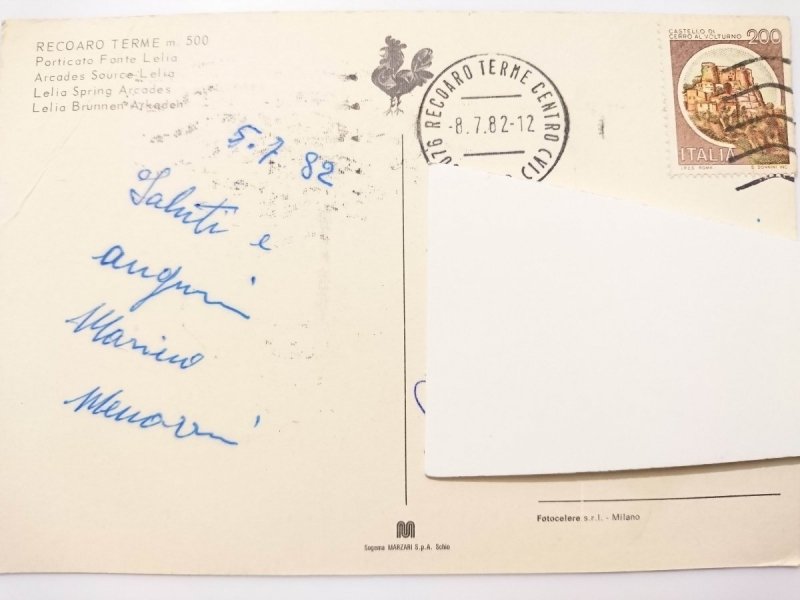 RECOARO TERME m. 500
Porticato Fonte Lelia
Arcades Source Lelia
Lelia Spring Arcades
Lelia Brunnen Arkaden
5.7.82
Saluti e
auguri
Marino
Menozzi
076 RECOARO TERME CENTRO (VI)
-8.7.82-12
CASTELLO DI
CERRO AL VOLTURNO
200
ITALIA
I.P.Z.S. ROMA
Fotocelere s.r.l. - Milano
Sogema MARZARI S.p.A. Schio